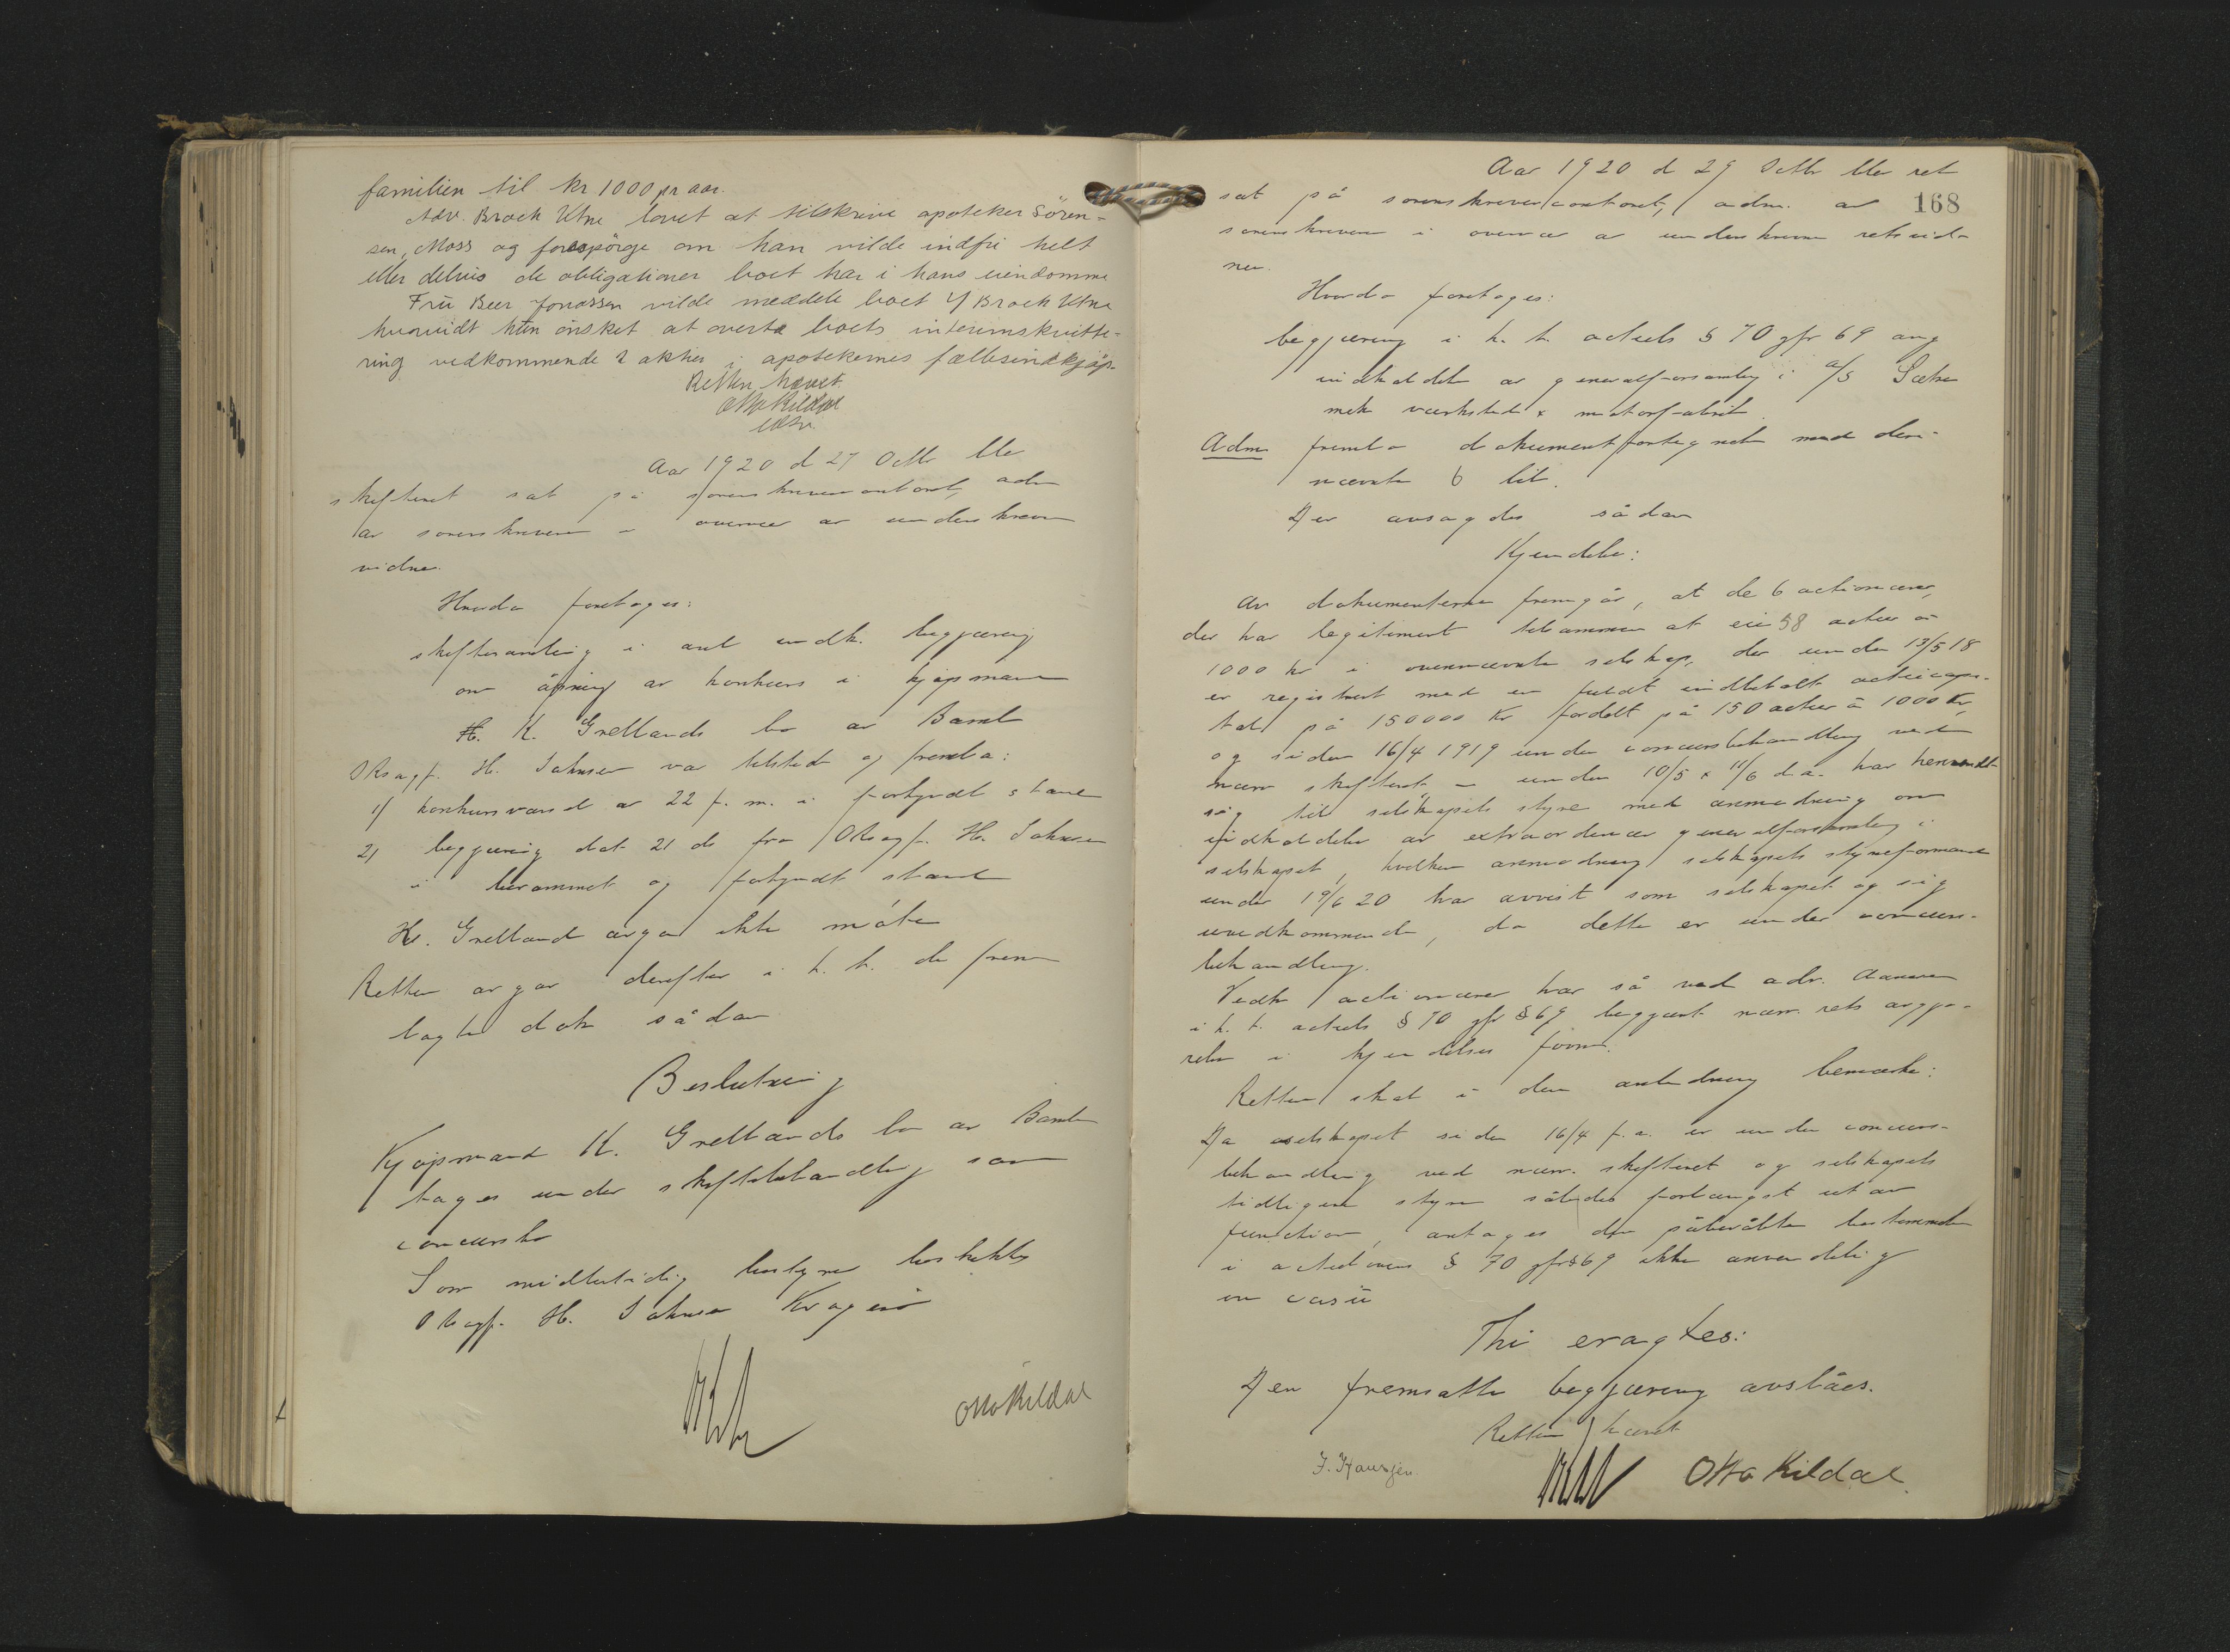 familien til kr 1000 pr aar.
Adv. Broch Utne lovet at tilskrive apoteker Sören-
sen, Moss og forespörge om han vilde indfri helt
eller delvis de obligationer boet har i hans eiendomme
Frü Beer Jonassen vilde meddele boet v/ Broch Utne
hvorvidt hün önsket at overta boets interimskvitte-
ring vedkommende 2 aktier i apotekernes fællesindkjöp.
Retten hævet.
Otto Kildal
Aar 1920 d 27 Octbr ble
skifteret sat på sorenskrivercontoret, adm
av sorenskriveren i overvær av underskrevne
vidne.
Hvorda foretoges:
skiftesamling i anl indk. begjæring
om åpning av konkurs i kjøpmann
H. K. Grellands bo av Bamle
ORsagf. H. Johnsen var tilstede og fremla:
1/ konkursvarsel av 22 f. m. i forkyndt stand
2/ begjæring dat 21 ds fra ORsagf. H. Johnsen
i berammet og forkyndt stand
Hr. Grelland avgav ikke møte
Retten avgav derefter i h. t. de frem
lagte dok sådan
Beslutning
Kjøpmand K. Grellands bo av Bamle
tages under skiftebehandling som
concursbo
Som midlertidig bestyrer beskikkes
ORsagf. H. Johnsen Kragerø
Otto Kildal
Aar 1920 d 29 Octbr ble ret
168
sat på sorenskrivercontoret, adm. av
sorenskriveren i overvær av underskrevne retsvid-
ner.
Hvorda foretoges:
begjæring i h. t. actiels § 70 jfr 69 ang
indkaldelse av generalforsamling i A/S Sætre
mek værksted & motorfabrik.
Adm fremla dokumentfortegnelse med deri
nævnte 6 bil.
Der avsagdes sådan
Kjendelse:
Av dokumenterne fremgår, at de 6 actionærer,
der har legitimert tilsammen at eie 58 actier à
1000 kr i overnævnte selskap, der under 13/5 18
er registrert med en fuldt indbetalt actiecapi-
tal på 150000 Kr fordelt på 150 actier à 1000 Kr,
og siden 16/4 1919 under concursbehandling ved
nærv skifteret – under 10/5 & 11/6 d.a. har henvendt
sig til selskapets styre med anmodning om
indkaldelse av extraordinær generalforsamling i
selskapet, hvilken anmodning selskapets styreformand
under 19/6 20 har avvist som selskapet og sig
uvedkommende, da dette er under concurs-
behandling.
Vedk actionærer har så ved adv. Aanesen
i h. t. actiels § 70 jfr § 69 begjært nærv. rets avgjø-
relse i kjendelses form.
Retten skal i den anledning bemærke:
Da selskapet siden 16/4 f.a. er under concurs-
behandling ved nærv. skifteret og selskapets
tidligere styre således forlængst ut av
function, antages den påberåbte bestemmelse
i actielovens § 70 jfr § 69 ikke anvendelig
in casü
Thi eragtes:
Den fremsatte begjæring avslåes.
Retten hævet
Otto Kildal